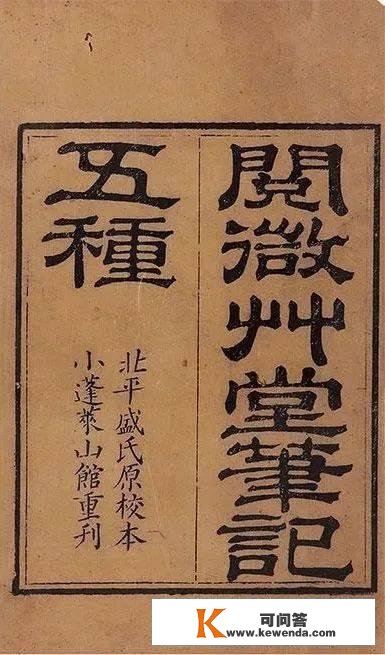 閱微艸堂筆記
五種
北平盛氏原校本
小蓬萊山館重刊
K 可问答
www.kewenda.com